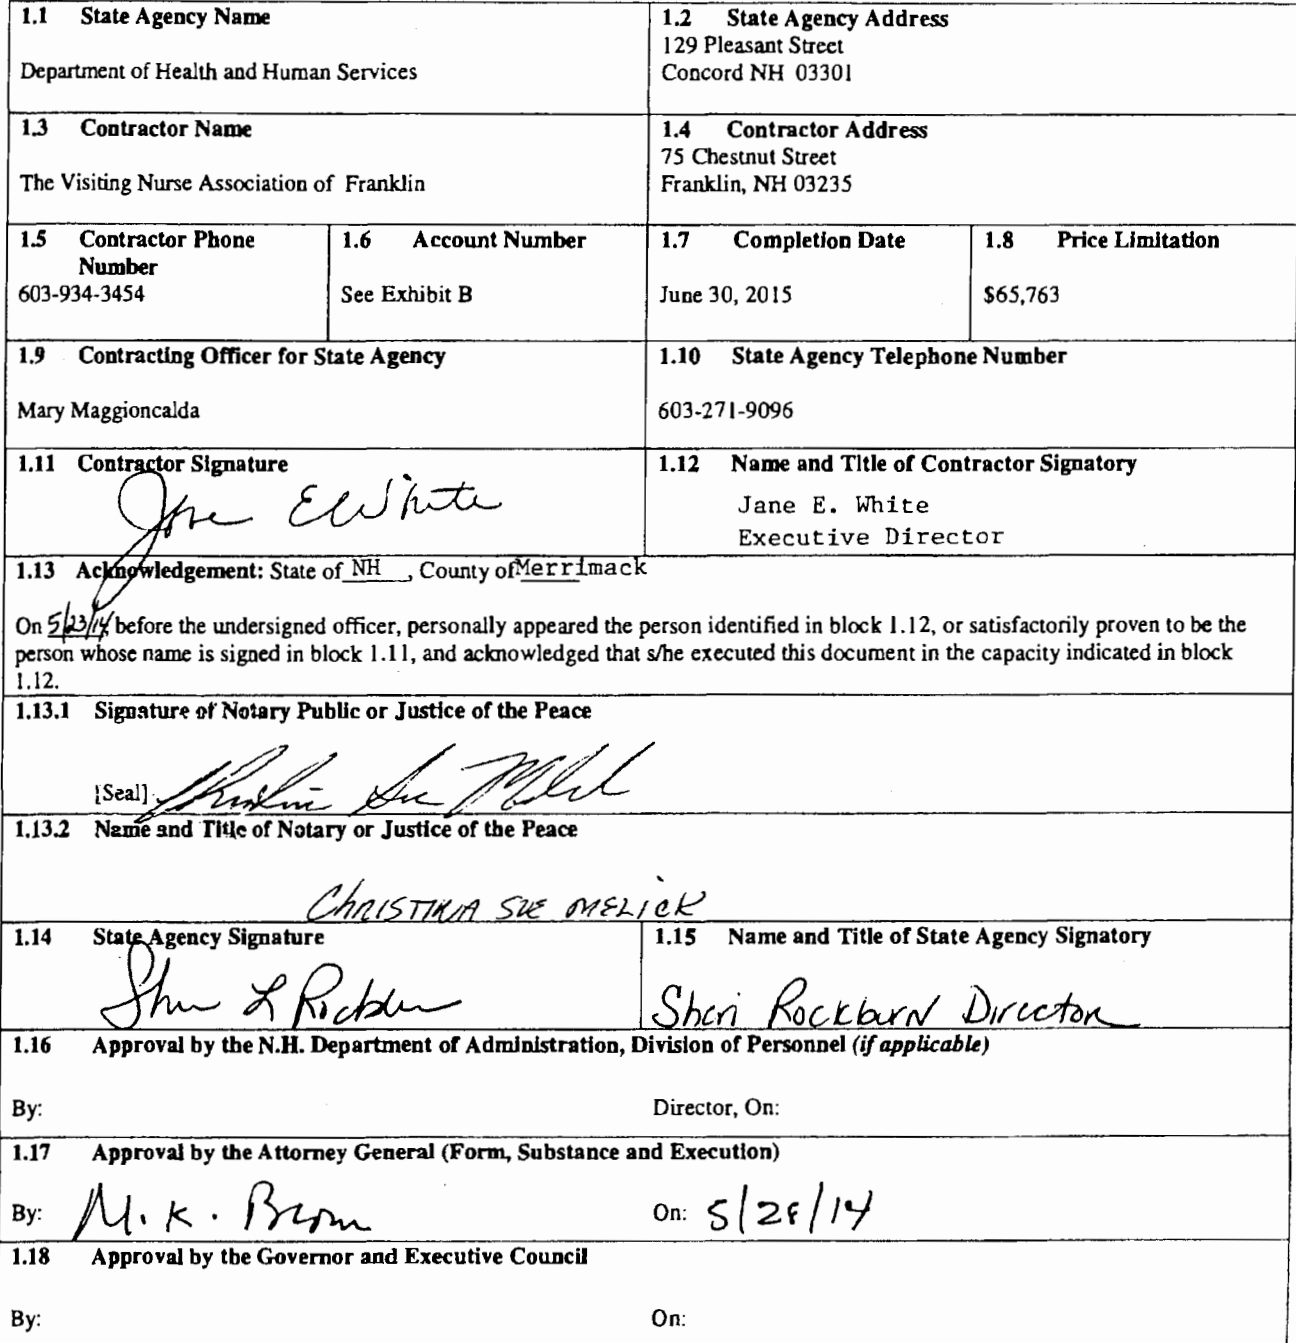 1.1 State Agency Name
Department of Health and Human Services
1.2 State Agency Address
129 Pleasant Street
Concord NH 03301
1.3 Contractor Name
The Visiting Nurse Association of Franklin
1.4 Contractor Address
75 Chestnut Street
Franklin, NH 03235
1.5 Contractor Phone
Number
603-934-3454
1.6 Account Number
See Exhibit B
1.7 Completion Date
June 30, 2015
1.8 Price Limitation
$65,763
1.9 Contracting Officer for State Agency
Mary Maggioncalda
1.10 State Agency Telephone Number
603-271-9096
1.11 Contractor Signature
Jane E White
1.12 Name and Title of Contractor Signatory
Jane E. White
Executive Director
1.13 Acknowledgement: State of NH, County of Merrimack
On 5/23/14, before the undersigned officer, personally appeared the person identified in block 1.12, or satisfactorily proven to be the
person whose name is signed in block 1.11, and acknowledged that s/he executed this document in the capacity indicated in block
1.12.
1.13.1 Signature of Notary Public or Justice of the Peace
[Seal]
1.13.2 Name and Title of Notary or Justice of the Peace
Christina Sue Melick
1.14 State Agency Signature
1.15 Name and Title of State Agency Signatory
Sheri Rockburn Director
1.16 Approval by the N.H. Department of Administration, Division of Personnel (if applicable)
By:
Director, On:
1.17 Approval by the Attorney General (Form, Substance and Execution)
By: M. K. Brown
On: 5/28/14
1.18 Approval by the Governor and Executive Council
By:
On: